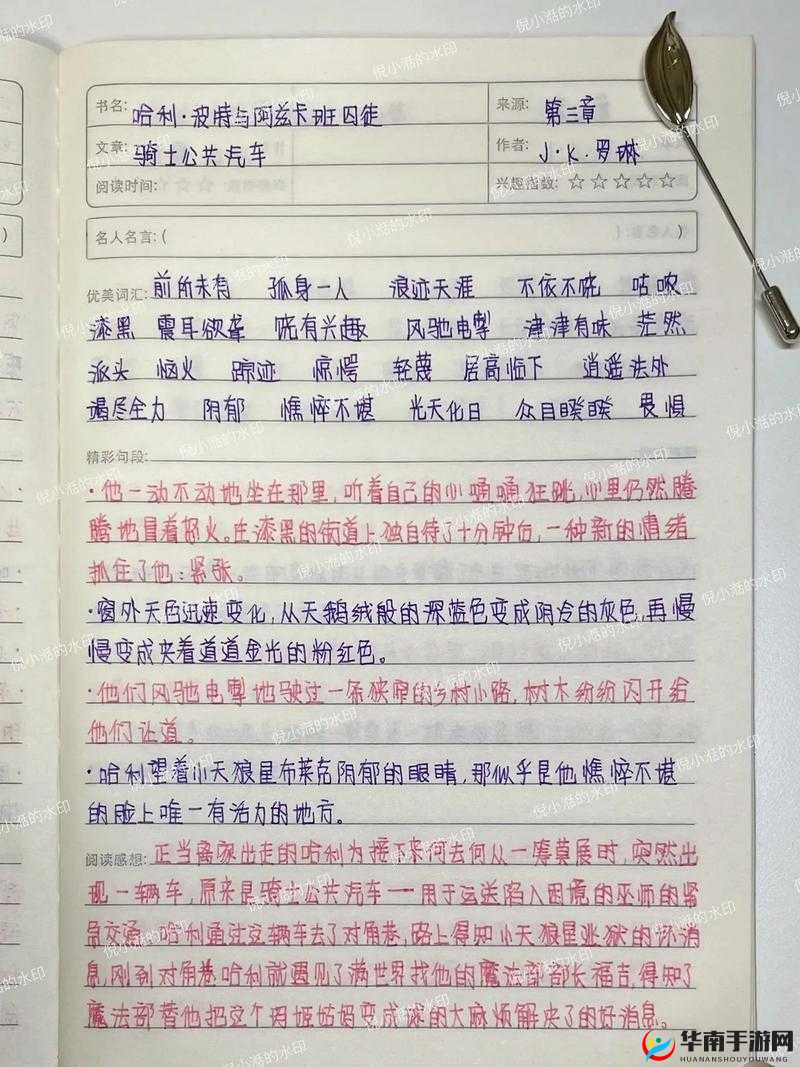 书名: 哈利·波特与阿兹卡班囚徒
来源: 第三章
文章: 骑士公共汽车
作者: J·K·罗琳
阅读时间:
兴趣指数: ☆☆☆☆☆
名人名言: ( )
优美词汇: 前所未有 孤身一人 浪迹天涯 不依不饶 咕哝
漆黑 震耳欲聋 饶有兴趣 风驰电掣 津津有味 茫然
派头 恼火 踪迹 惊愕 轻蔑 居高临下 逍遥法外
竭尽全力 阴郁 憔悴不堪 光天化日 众目睽睽 畏惧
精彩句段:
·他一动不动地坐在那里,听着自己的心嗵嗵狂跳,心里仍然腾
腾地冒着怒火。在漆黑的街道上独自待了十分钟后,一种新的情绪
抓住了他:紧张。
·窗外天色迅速变化,从天鹅绒般的深蓝色变成阴冷的灰色,再慢
慢变成夹着道道金光的粉红色。
·他们风驰电掣地驶过一条狭窄的乡村小路,树木纷纷闪开给
他们让道。
·哈利望着小天狼星布莱克阴郁的眼睛,那似乎是他憔悴不堪
的脸上唯一有活力的地方。
阅读感想: 正当离家出走的哈利为接下来何去何从一筹莫展时,突然出
现一辆车,原来是骑士公共汽车——用于运送陷入困境的巫师的紧
急交通。哈利通过这辆车去了对角巷,路上得知小天狼星逃狱的坏消
息,刚到对角巷哈利就遇见了满世界找他的魔法部部长福吉,得知了
魔法部替他把这个玛姬姑妈变成球的大麻烦解决了的好消息。
倪小湉的水印
华南手游网
HUANANSHOUYOUWANG